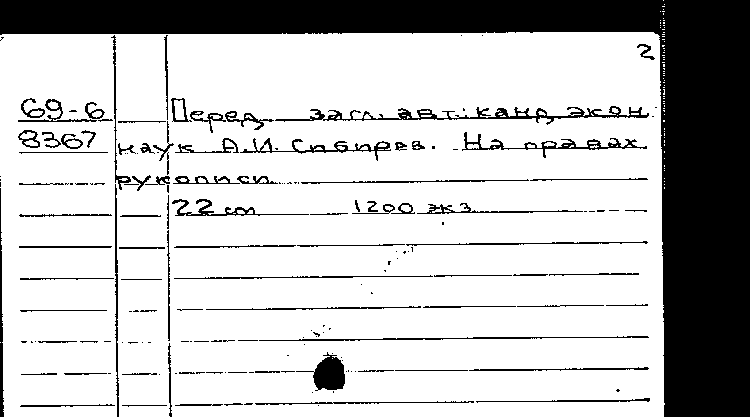 2
69-6 Перед загл. авт: канд. экон.
8367 наук А.И. Сибирев. На правах
рукописи
22 cm 1200 экз.